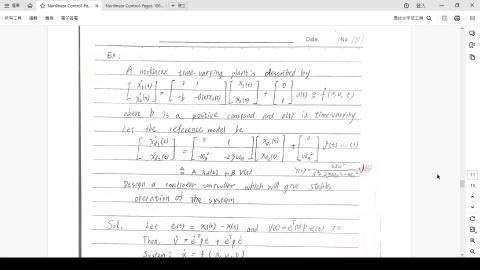 Nonlinear Control-Pages
Nonlinear Control-Pages 106...
建立
登入
所有工具 編輯 轉換 電子簽署
Date. No. 101
Ex:
A nonlinear time-varying plant is described by
[ẋ₁(t) ẋ₂(t)] = [0 1 -b -a(t)x₂(t)] [x₁(t) x₂(t)] + [0 1] u(t) ≜ f(x, u, t)
where b is a positive constant and a(t) is time-varying
Let the reference model be
[ẋd₁(t) ẋd₂(t)] = [0 1 -ωn² -2ξωn] [xd₁(t) xd₂(t)] + [0 ωn²] v(t) ... (1)
≜ A xd(t) + B v(t)
Design a nonlinear controller which will give stable
operation of the system
Sol. Let e(t) = xd(t) - x(t) and V(e) = eᵀ(t) P e(t) > 0
Then, V̇ = ėᵀ P e + eᵀ P ė
System: ẋ = f(x, u, t)
11
15